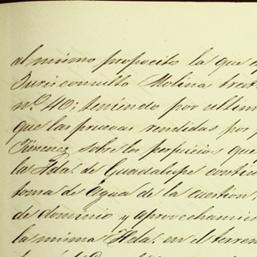 al mismo proposito la que
Jurisconsulto Molina trat
nº 40; teniendo por ultim
que las pruevas rendidas por
Jimenez sobre los perjuicios que
la Hda. de Guadalupe contin
toma de agua de la cuestion,
de dominio y aprovechamien
la misma Hda. en el terren